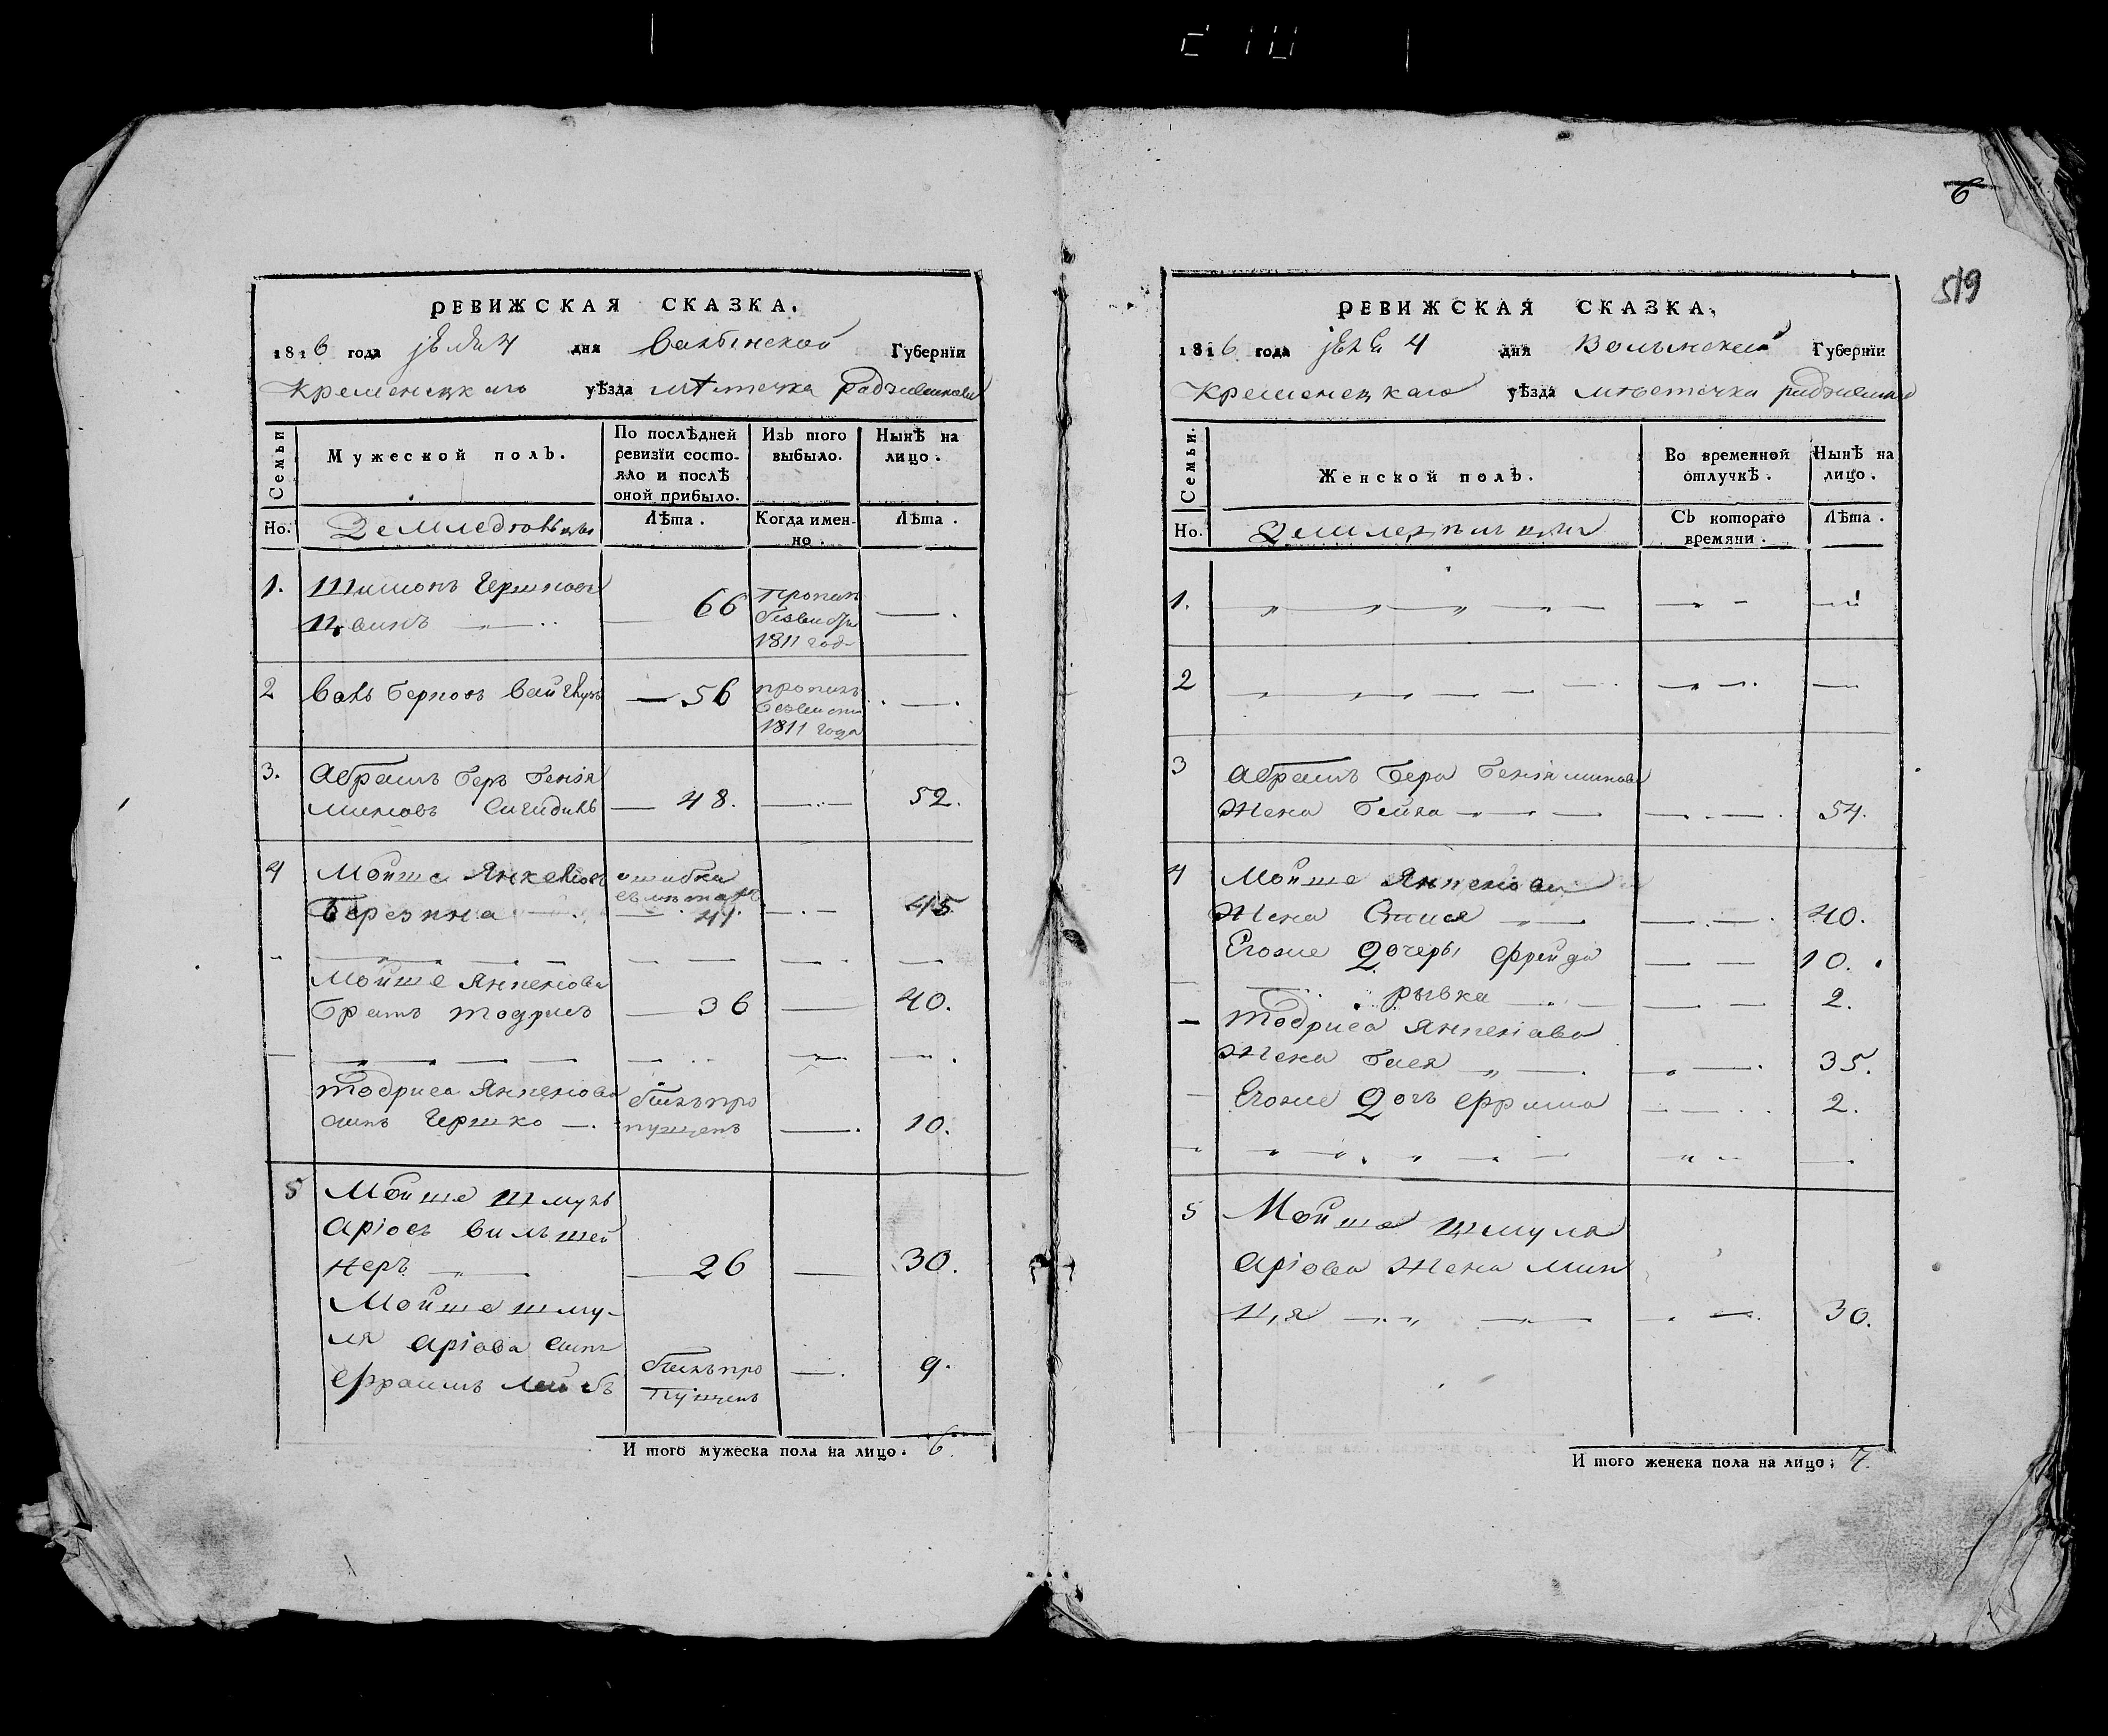 6
519
РЕВИЖСКАЯ СКАЗКА.
1816 года іюля 4 дня Валынской Губернїи
Кременецкаго уѣзда мѣстечка радзивилова
Семьи
Мужеской полъ.
По послѣдней ревизїи состояло и послѣ оной прибыло.
Изъ того выбыло.
Нынѣ на лицо.
Но.
Лѣта.
Когда именно.
Лѣта.
1. Шимонъ Гершковъ
66
пропалъ
1811 год
2 Вольъ Берковъ
56
пропалъ
1811 года
3. Абрамъ Беръ Бенія
миновъ
48. 52.
4 Мойше Янкелювъ
ошибка
Березина 41. 45.
Мойше Янкелюва
братъ тодрисъ 36 40.
тодриса Янкелюва
былъ про
сынъ Гершко
пущенъ
10.
5 Мойше Шмуль
Аріовъ Вильшей
неръ 26 30.
Мойше шму-
ля Аріова сынъ
былъ про
Ефраимъ Лейбъ
пущенъ
9.
И того мужеска пола на лицо. 6
РЕВИЖСКАЯ СКАЗКА.
1816 года іюля 4 дня Волынской Губернїи
Кременецкаго уѣзда мѣстечка
Семьи.
Женской полъ.
Во временной отлучкѣ.
Нынѣ на лицо.
Но.
Съ котораго времяни.
Лѣта.
1.
2
3 Абрамъ Бера Беніаминова
жена Бейла 54.
4 Мойше Янкелюва
жена Стися 40.
Егоже дочеры Фрейда 10.
рывка 2.
тодриса Янкелюва
жена Бася 35.
Егоже дочь Фрима 2.
5 Мойше Шмуля
Аріова жена Мин
ця 30.
И того женска пола на лицо: 7.